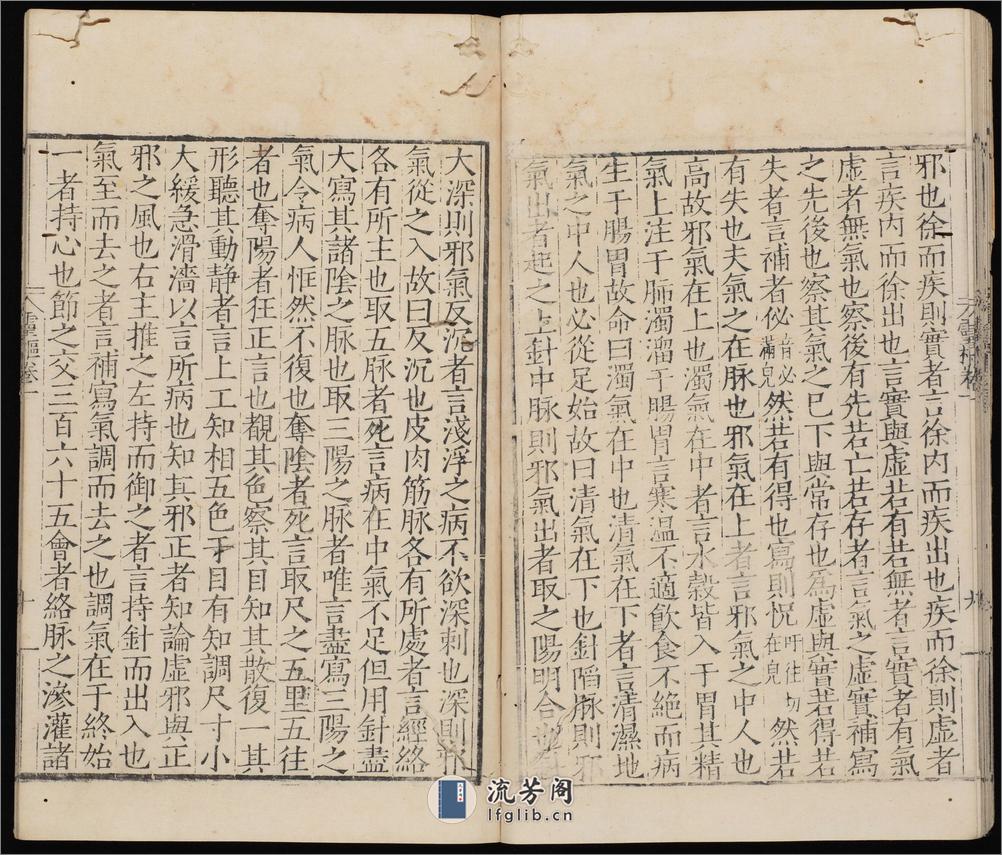 邪也徐而疾則實者言徐內而疾出也疾而徐則虛者
言疾內而徐出也言實與虛若有若無者言實者有氣
虛者無氣也察後有先若亡若存者言氣之虛實補寫
之先後也察其氣之已下與常存也為虛與實若得若
失者言補者佖音必滿皃然若有得也寫則怳吁往切在皃然若
有失也夫氣之在脉也邪氣在上者言邪氣之中人也
高故邪氣在上也濁氣在中者言水穀皆入于胃其精
氣上注于肺濁溜于腸胃言寒温不適飲食不絕而病
生于腸胃故命曰濁氣在中也清氣在下者言清濕地
氣之中人也必從足始故曰清氣在下也針陷脉則邪
氣出者起之上針中脉則邪氣出者取之陽明合也
大深則邪氣反沉者言淺浮之病不欲深刺也深則邪
氣從之入故曰反沉也皮肉筋脉各有所處者言經絡
各有所主也取五脉者死言病在中氣不足但用針盡
大寫其諸陰之脉也取三陽之脉者唯言盡寫三陽之
氣令病人恇然不復也奪陰者死言取尺之五里五往
者也奪陽者狂正言也觀其色察其目知其散復一其
形聽其動静者言上工知相五色于目有知調尺寸小
大緩急滑濇以言所病也知其邪正者知論虛邪與正
邪之風也右主推之左持而御之者言持針而出入也
氣至而去之者言補寫氣調而去之也調氣在于終始
一者持心也節之交三百六十五會者絡脉之滲灌諸
靈樞卷一
十一
流芳阁
lfglib.cn